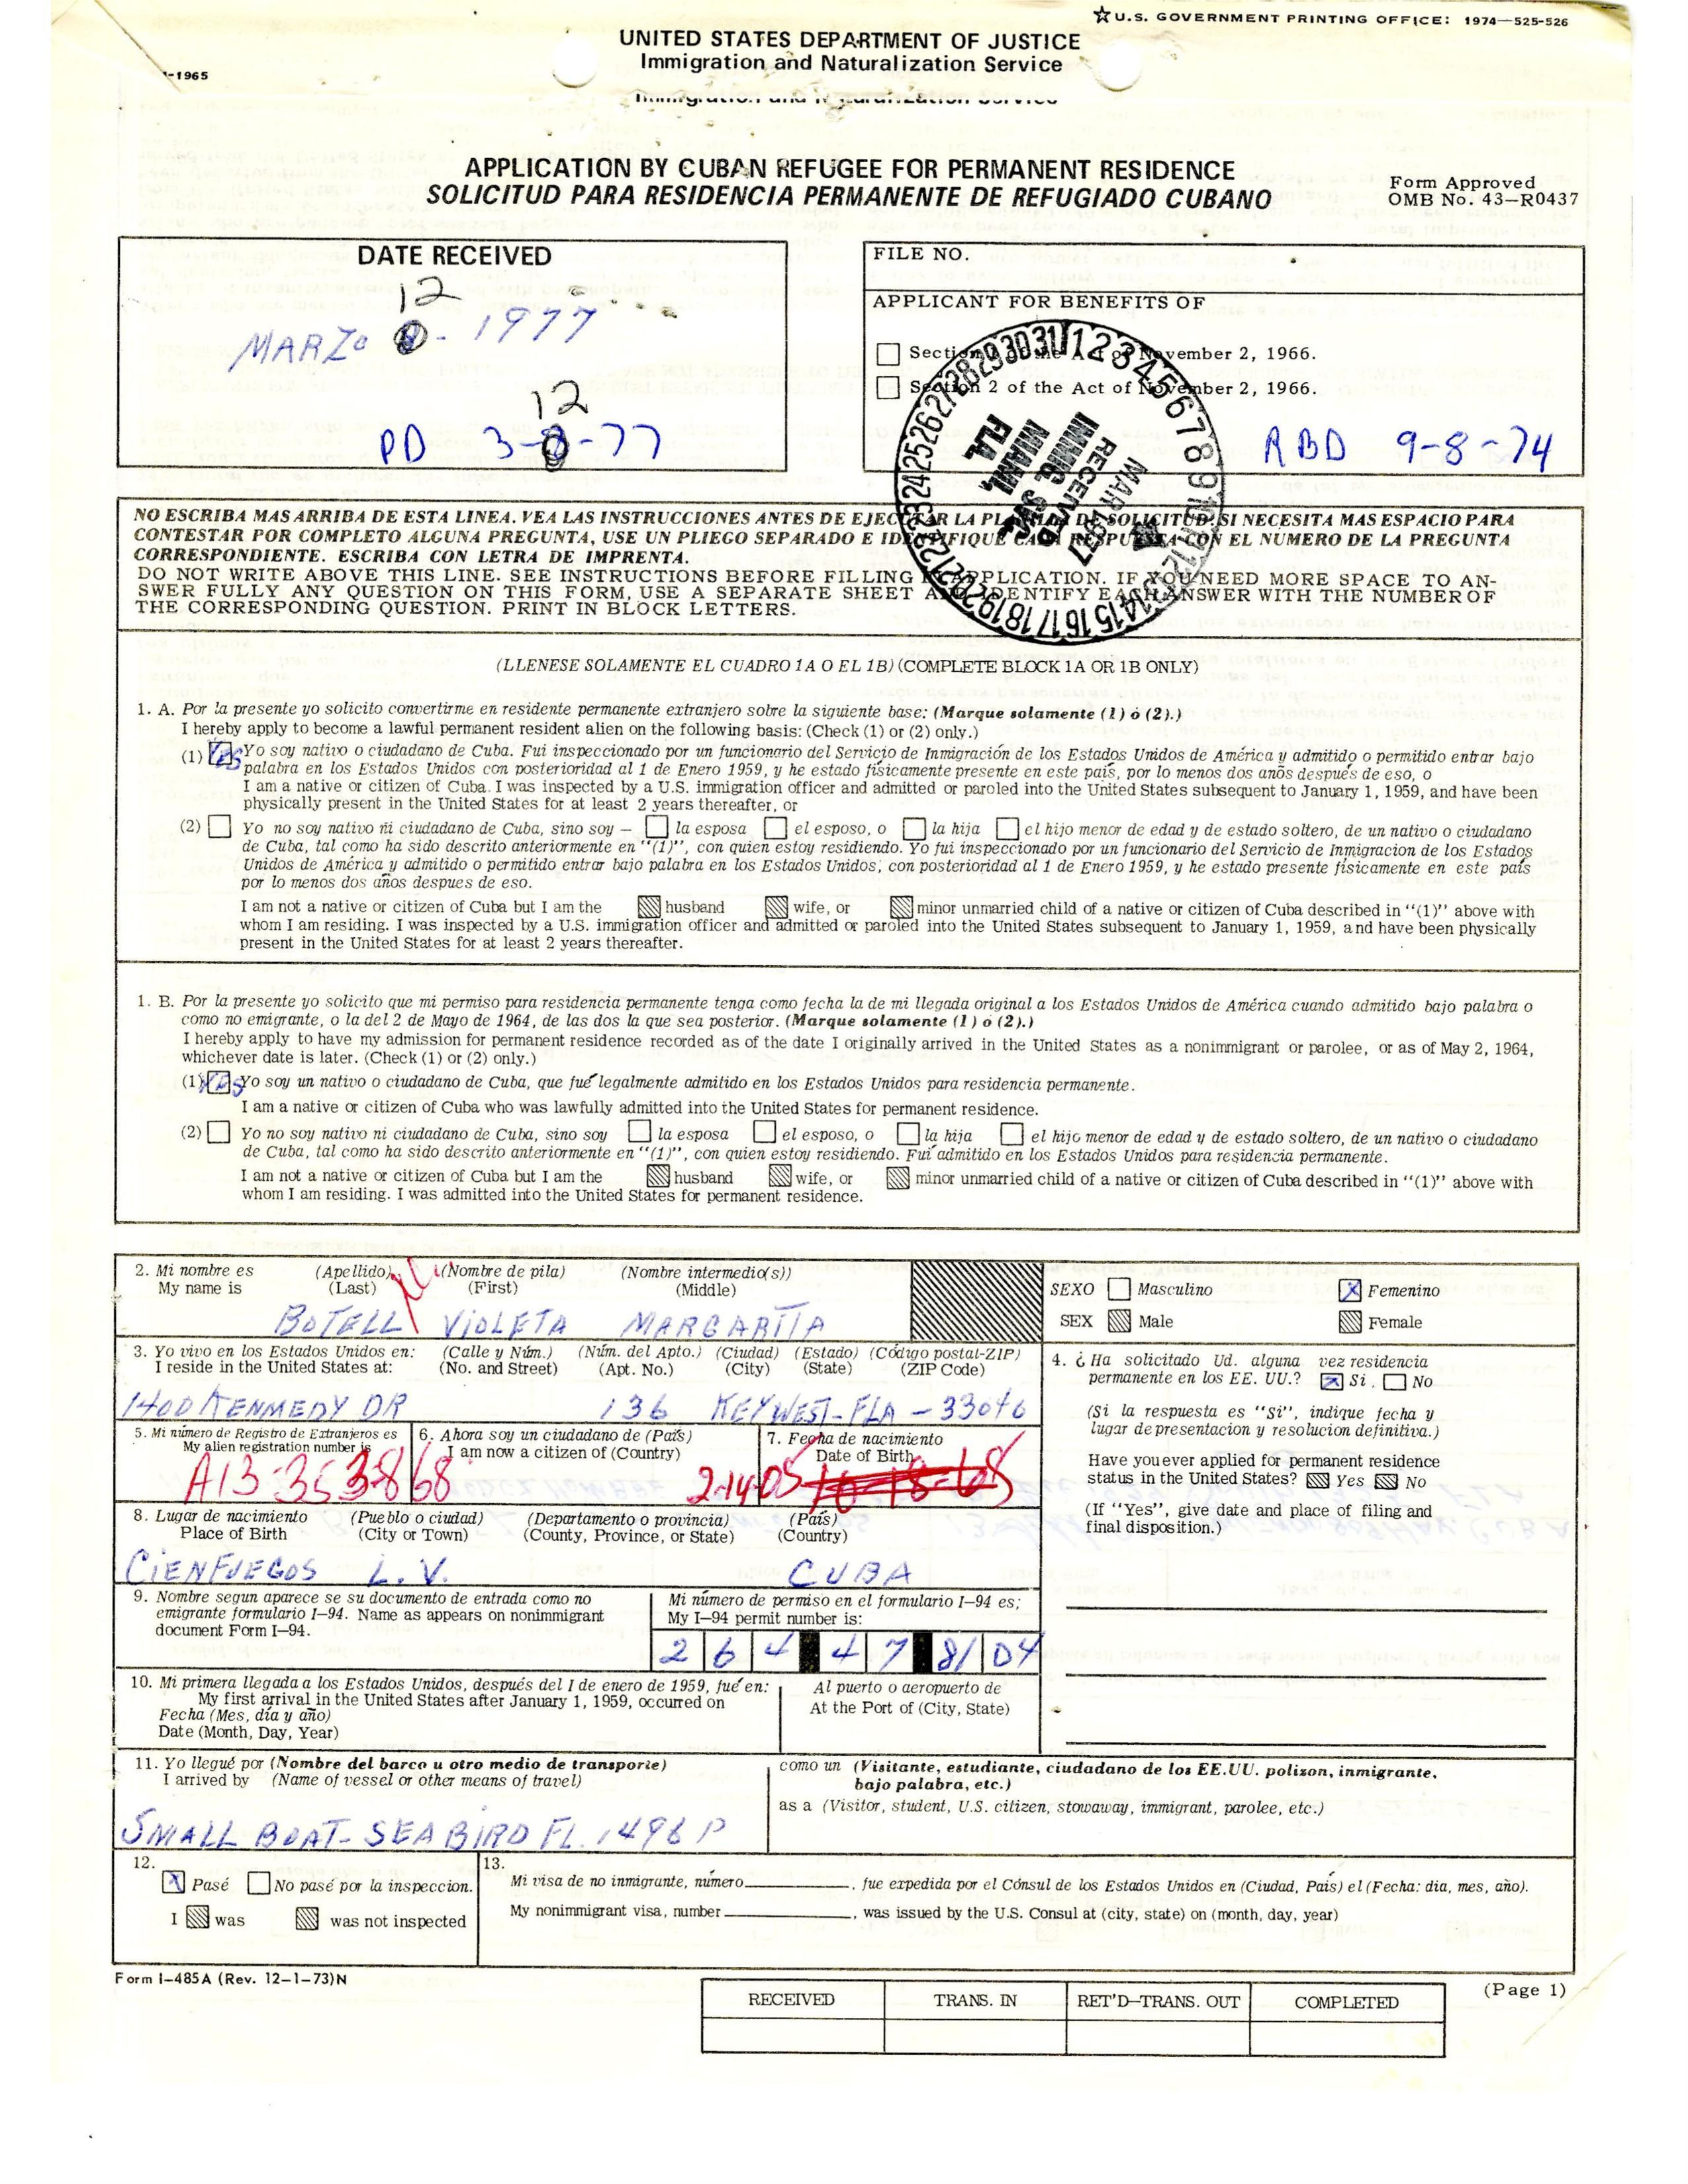 ☆U.S. GOVERNMENT PRINTING OFFICE: 1974—525-526
UNITED STATES DEPARTMENT OF JUSTICE
Immigration and Naturalization Service
-1965
APPLICATION BY CUBAN REFUGEE FOR PERMANENT RESIDENCE
SOLICITUD PARA RESIDENCIA PERMANENTE DE REFUGIADO CUBANO
Form Approved
OMB No. 43-R0437
DATE RECEIVED
12
MARZO - 1977
12
PD 3- -77
FILE NO.
APPLICANT FOR BENEFITS OF
Section 1 of the Act of November 2, 1966.
Section 2 of the Act of November 2, 1966.
RBD 9-8-74
1 2 3 4 5 6 7 8 9 10 11 12 13 14 15 16 17 18 19 20 21 22 23 24 25 26 27 28 29 30 31
MAR 1977
RECEIVED
IMMIG. SVC.
MIAMI,
FLA.
NO ESCRIBA MAS ARRIBA DE ESTA LINEA. VEA LAS INSTRUCCIONES ANTES DE EJECUTAR LA PLANILLA DE SOLICITUD. SI NECESITA MAS ESPACIO PARA
CONTESTAR POR COMPLETO ALGUNA PREGUNTA, USE UN PLIEGO SEPARADO E IDENTIFIQUE CADA RESPUESTA CON EL NUMERO DE LA PREGUNTA
CORRESPONDIENTE. ESCRIBA CON LETRA DE IMPRENTA.
DO NOT WRITE ABOVE THIS LINE. SEE INSTRUCTIONS BEFORE FILLING IN APPLICATION. IF YOU NEED MORE SPACE TO AN-
SWER FULLY ANY QUESTION ON THIS FORM, USE A SEPARATE SHEET AND IDENTIFY EACH ANSWER WITH THE NUMBER OF
THE CORRESPONDING QUESTION. PRINT IN BLOCK LETTERS.
(LLENESE SOLAMENTE EL CUADRO 1A O EL 1B) (COMPLETE BLOCK 1A OR 1B ONLY)
1. A. Por la presente yo solicito convertirme en residente permanente extranjero sobre la siguiente base: (Marque solamente (1) ó (2).)
I hereby apply to become a lawful permanent resident alien on the following basis: (Check (1) or (2) only.)
(1) YES Yo soy nativo o ciudadano de Cuba. Fui inspeccionado por un funcionario del Servicio de Inmigración de los Estados Unidos de América y admitido o permitido entrar bajo
palabra en los Estados Unidos con posterioridad al 1 de Enero 1959, y he estado físicamente presente en este país, por lo menos dos anõs después de eso, o
I am a native or citizen of Cuba. I was inspected by a U.S. immigration officer and admitted or paroled into the United States subsequent to January 1, 1959, and have been
physically present in the United States for at least 2 years thereafter, or
(2) Yo no soy nativo ñi ciudadano de Cuba, sino soy — la esposa el esposo, o la hija el hijo menor de edad y de estado soltero, de un nativo o ciudadano
de Cuba, tal como ha sido descrito anteriormente en "(1)", con quien estoy residiendo. Yo fui inspeccionado por un funcionario del Servicio de Inmigracion de los Estados
Unidos de América y admitido o permitido entrar bajo palabra en los Estados Unidos, con posterioridad al 1 de Enero 1959, y he estado presente físicamente en este país
por lo menos dos años despues de eso.
I am not a native or citizen of Cuba but I am the husband wife, or minor unmarried child of a native or citizen of Cuba described in "(1)" above with
whom I am residing. I was inspected by a U.S. immigration officer and admitted or paroled into the United States subsequent to January 1, 1959, and have been physically
present in the United States for at least 2 years thereafter.
1. B. Por la presente yo solicito que mi permiso para residencia permanente tenga como fecha la de mi llegada original a los Estados Unidos de América cuando admitido bajo palabra o
como no emigrante, o la del 2 de Mayo de 1964, de las dos la que sea posterior. (Marque solamente (1) o (2).)
I hereby apply to have my admission for permanent residence recorded as of the date I originally arrived in the United States as a nonimmigrant or parolee, or as of May 2, 1964,
whichever date is later. (Check (1) or (2) only.)
(1) YES Yo soy un nativo o ciudadano de Cuba, que fué legalmente admitido en los Estados Unidos para residencia permanente.
I am a native or citizen of Cuba who was lawfully admitted into the United States for permanent residence.
(2) Yo no soy nativo ni ciudadano de Cuba, sino soy la esposa el esposo, o la hija el hijo menor de edad y de estado soltero, de un nativo o ciudadano
de Cuba, tal como ha sido descrito anteriormente en "(1)", con quien estoy residiendo. Fuí admitido en los Estados Unidos para residencia permanente.
I am not a native or citizen of Cuba but I am the husband wife, or minor unmarried child of a native or citizen of Cuba described in "(1)" above with
whom I am residing. I was admitted into the United States for permanent residence.
2. Mi nombre es (Apellido) (Nombre de pila) (Nombre intermedio(s))
My name is (Last) (First) (Middle)
BOTELL VIOLETA MARGARITA
SEXO Masculino X Femenino
SEX Male Female
3. Yo vivo en los Estados Unidos en: (Calle y Núm.) (Núm. del Apto.) (Ciudad) (Estado) (Código postal-ZIP)
I reside in the United States at: (No. and Street) (Apt. No.) (City) (State) (ZIP Code)
1400 KENNEDY DR 136 KEY WEST-FLA-33040
4. ¿Ha solicitado Ud. alguna vez residencia
permanente en los EE. UU.? X Si. No
(Si la respuesta es "Si", indique fecha y
lugar de presentacion y resolucion definitiva.)
Have you ever applied for permanent residence
status in the United States? Yes No
(If "Yes", give date and place of filing and
final disposition.)
5. Mi número de Registro de Extranjeros es
My alien registration number is
A13-353868
6. Ahora soy un ciudadano de (País)
I am now a citizen of (Country)
7. Fecha de nacimiento
Date of Birth
2-14-05
8. Lugar de nacimiento (Pueblo o ciudad) (Departamento o provincia) (País)
Place of Birth (City or Town) (County, Province, or State) (Country)
CIENFUEGOS L.V. CUBA
9. Nombre segun aparece se su documento de entrada como no
emigrante formulario I-94. Name as appears on nonimmigrant
document Form I-94.
Mi número de permiso en el formulario I-94 es;
My I-94 permit number is:
2 6 4 4 7 8 04
10. Mi primera llegada a los Estados Unidos, después del I de enero de 1959, fué en:
My first arrival in the United States after January 1, 1959, occurred on
Fecha (Mes, día y año)
Date (Month, Day, Year)
Al puerto o aeropuerto de
At the Port of (City, State)
11. Yo llegué por (Nombre del barco u otro medio de transporte)
I arrived by (Name of vessel or other means of travel)
SMALL BOAT- SEA BIRD FL. 1496 P
como un (Visitante, estudiante, ciudadano de los EE.UU. polizon, inmigrante,
bajo palabra, etc.)
as a (Visitor, student, U.S. citizen, stowaway, immigrant, parolee, etc.)
12.
X Pasé No pasé por la inspeccion.
I was was not inspected
13.
Mi visa de no inmigrante, número , fue expedida por el Cónsul de los Estados Unidos en (Ciudad, País) el (Fecha: dia, mes, año).
My nonimmigrant visa, number , was issued by the U.S. Consul at (city, state) on (month, day, year)
Form I-485A (Rev. 12-1-73)N
(Page 1)
RECEIVED TRANS. IN RET'D-TRANS. OUT COMPLETED